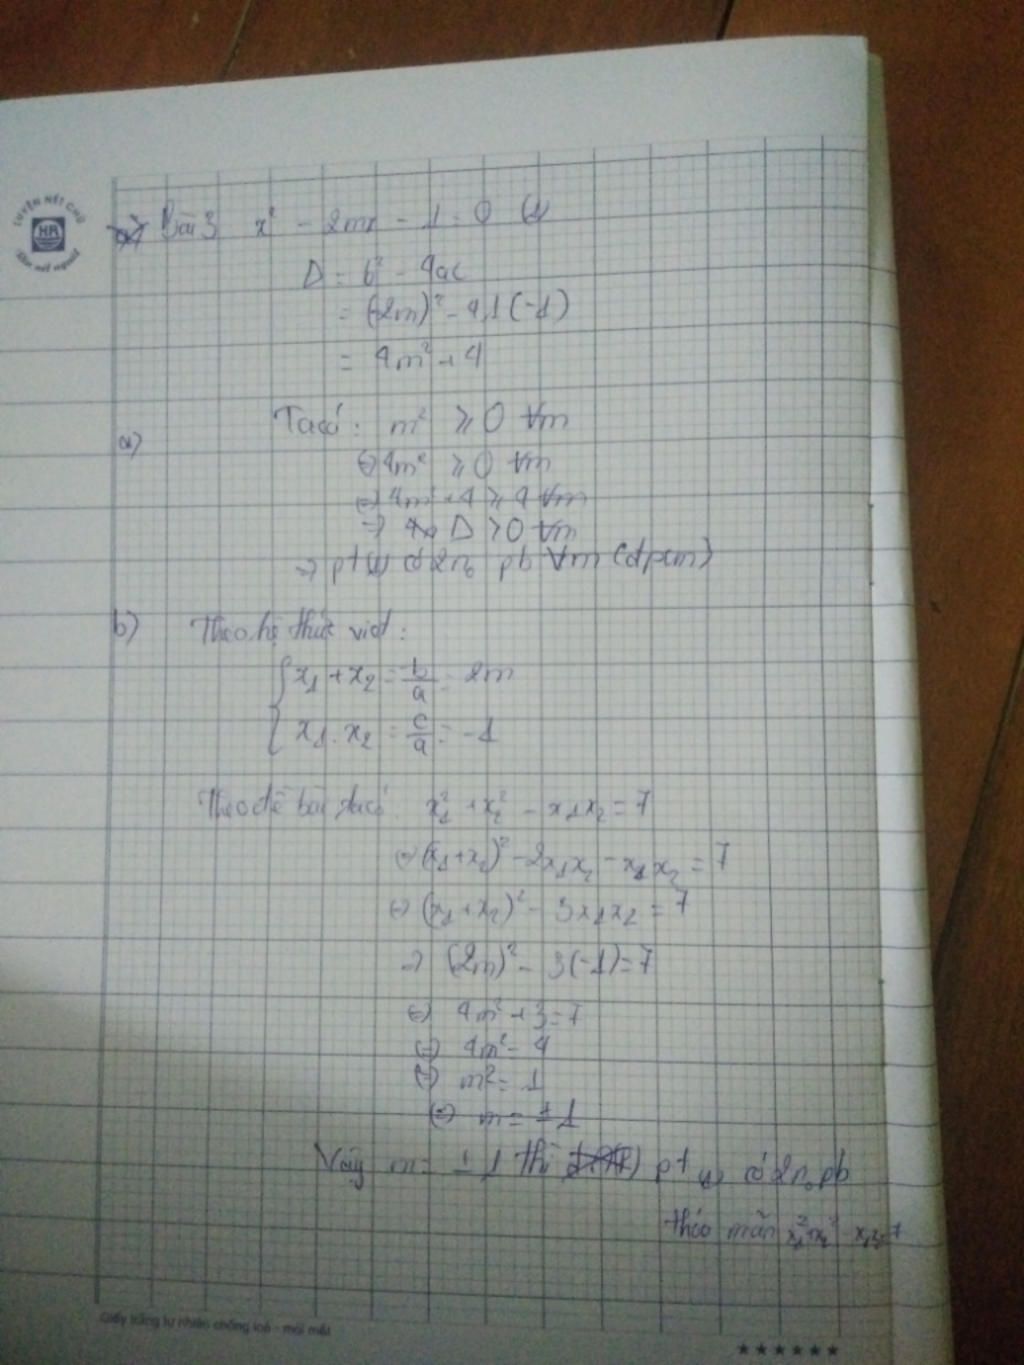 LUYỆN NÉT CHỮ
HA
Bài 3 x² - 2mx - 1 = 0 (1)
Δ = b² - 4ac
= (-2m)² - 4.1(-1)
= 4m² + 4
a) Ta có: m² ≥ 0 ∀m
⇔ 4m² ≥ 0 ∀m
⇔ 4m² + 4 ≥ 4 ∀m
⇒ Δ > 0 ∀m
⇒ pt (1) có 2 n₀ pb ∀m (đpcm)
b) Theo hệ thức viet:
x₁ + x₂ = -b/a = 2m
x₁ . x₂ = c/a = -1
Theo đề bài ta có: x₁² + x₂² - x₁x₂ = 7
⇔ (x₁+x₂)² - 2x₁x₂ - x₁x₂ = 7
⇔ (x₁+x₂)² - 3x₁x₂ = 7
⇒ (2m)² - 3(-1) = 7
⇔ 4m² + 3 = 7
⇔ 4m² = 4
⇔ m² = 1
⇔ m = ±1
Vậy m = ±1 thì pt (1) có 2 n₀ pb
thỏa mãn x₁²+x₂² - x₁x₂=7
Giấy trắng tự nhiên chống loá - mỏi mắt
★★★★★★